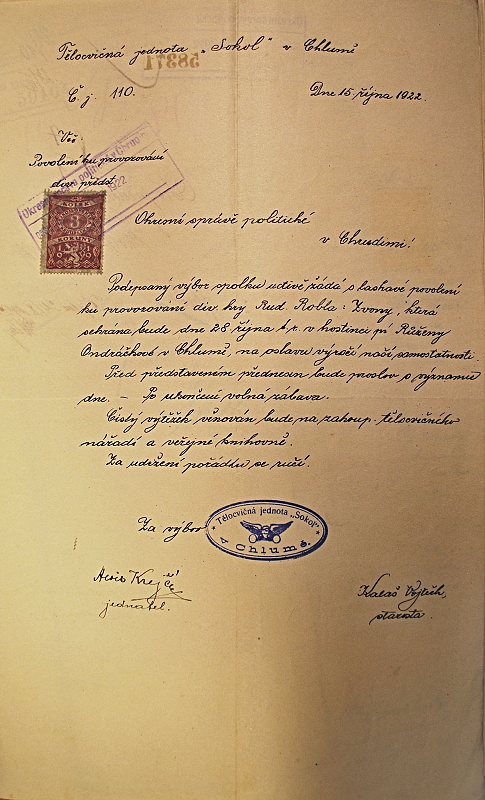 Tělocvičná jednota „Sokol" v Chlumě
Č. j. 110.
Dne 15. října 1922.
Věc:
Povolení ku provozování
div. předst.
1922
KOLEK
KORUNY
Okresní správě politické
v Chrudimi!
Podepsaný výbor spolku uctivě žádá o laskavé povolení
ku provozování div. hry Rud. Robla: Zvony, která
sehrána bude dne 28 října t. r. v hostinci pí Růženy
Ondráčkové v Chlumě, na oslavu výročí naší samostatnosti.
Před představením přednesen bude proslov o významu
dne. – Po ukončení volná zábava.
Čistý výtěžek věnován bude na zakoup. tělocvičného
nářadí a veřejné knihovně.
Za udržení pořádku se ručí.
Za výbor
Tělocvičná jednota „Sokol"
v Chlumě.
Alois Krejčí
jednatel.
Kalaš Vojtěch,
starosta.